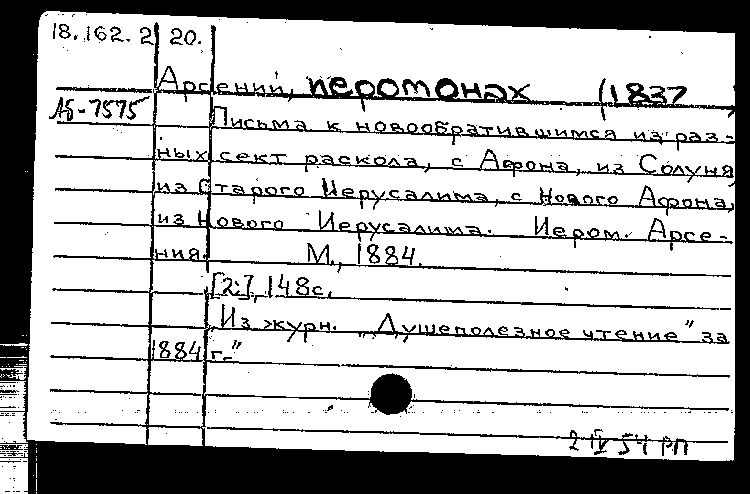 18.162.2 20.
Арсений, иеромонах (1837
Аб-7575
Письма к новообратившимся из раз-
ных сект раскола, с Афона, из Солуня,
из Старого Иерусалима, с Нового Афона,
из Нового Иерусалима. Иером. Арсе-
ния. М., 1884.
[2], 148с.
„Из журн. „Душеполезное чтение" за
1884 г."
2 IV 54 РП